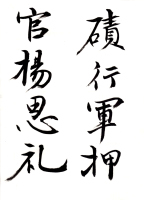 磧行軍押
官楊思礼